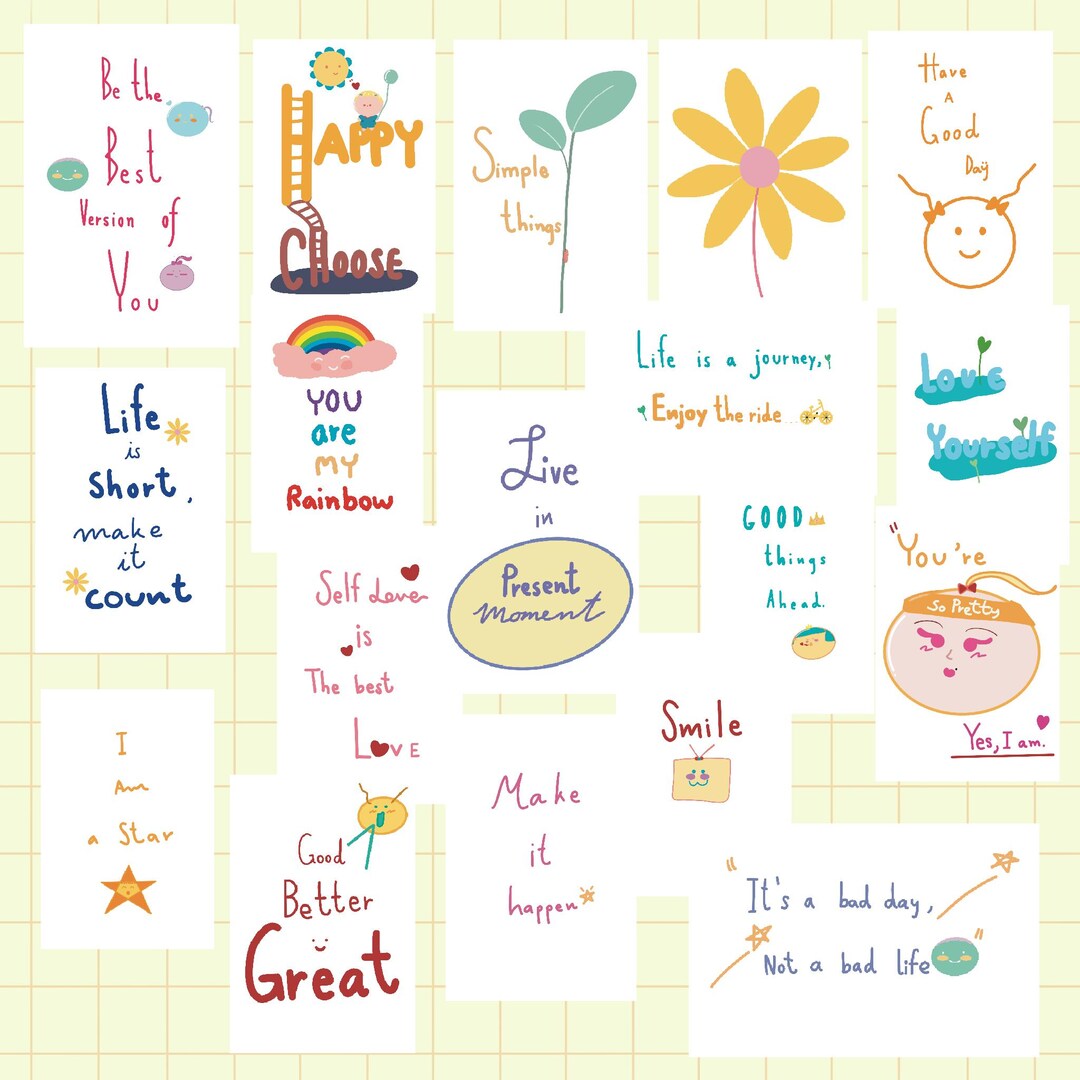 Be the
Best
Version of
You
HAPPY
CHOOSE
Simple
things
Have
A
Good
Day
Life
is
short,
make
it
count
YOU
are
MY
Rainbow
Life is a journey,
Enjoy the ride...
Love
Yourself
Live
in
Present
moment
GOOD
things
Ahead.
"You're
So Pretty
Yes, I am.
Self Love
is
The best
LOVE
I
Am
a Star
Good
Better
Great
Make
it
happen
Smile
"It's a bad day,
Not a bad life"